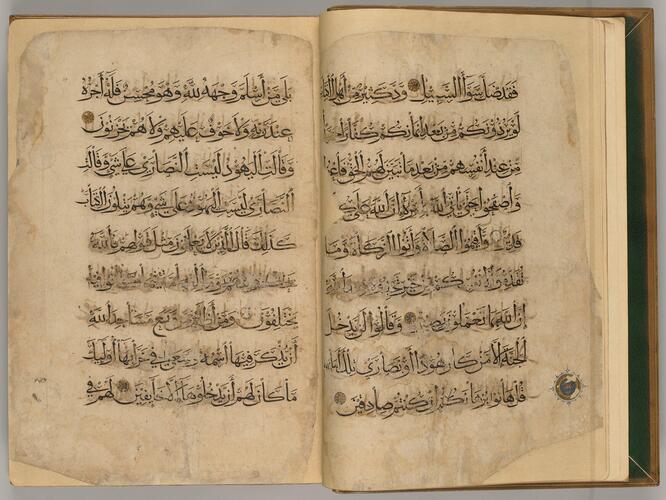 فقد ضل سوآء السبيل ود كثير من أهل الكتاب
لو يردونكم من بعد إيمانكم كفارا حسدا
من عند أنفسهم من بعد ما تبين لهم الحق فاعفوا
وأصفحوا حتى يأتي الله بأمره إن الله على كل
قدير وأقيموا الصلاة وآتوا الزكاة وما
تقدموا لأنفسكم من خير تجدوه عند الله
إن الله بما تعملون بصير وقالوا لن يدخل
الجنة إلا من كان هودا أو نصارى تلك أمانيهم
قل هاتوا برهانكم إن كنتم صادقين
بلى من أسلم وجهه لله وهو محسن فله أجره
عند ربه ولا خوف عليهم ولا هم يحزنون
وقالت اليهود ليست النصارى على شيء وقالت
النصارى ليست اليهود على شيء وهم يتلون الكتاب
كذلك قال الذين لا يعلمون مثل قولهم فالله
يحكم بينهم يوم القيامة فيما كانوا فيه
يختلفون ومن أظلم ممن منع مساجد الله
أن يذكر فيها اسمه وسعى في خرابها أولئك
ما كان لهم أن يدخلوها إلا خائفين لهم في